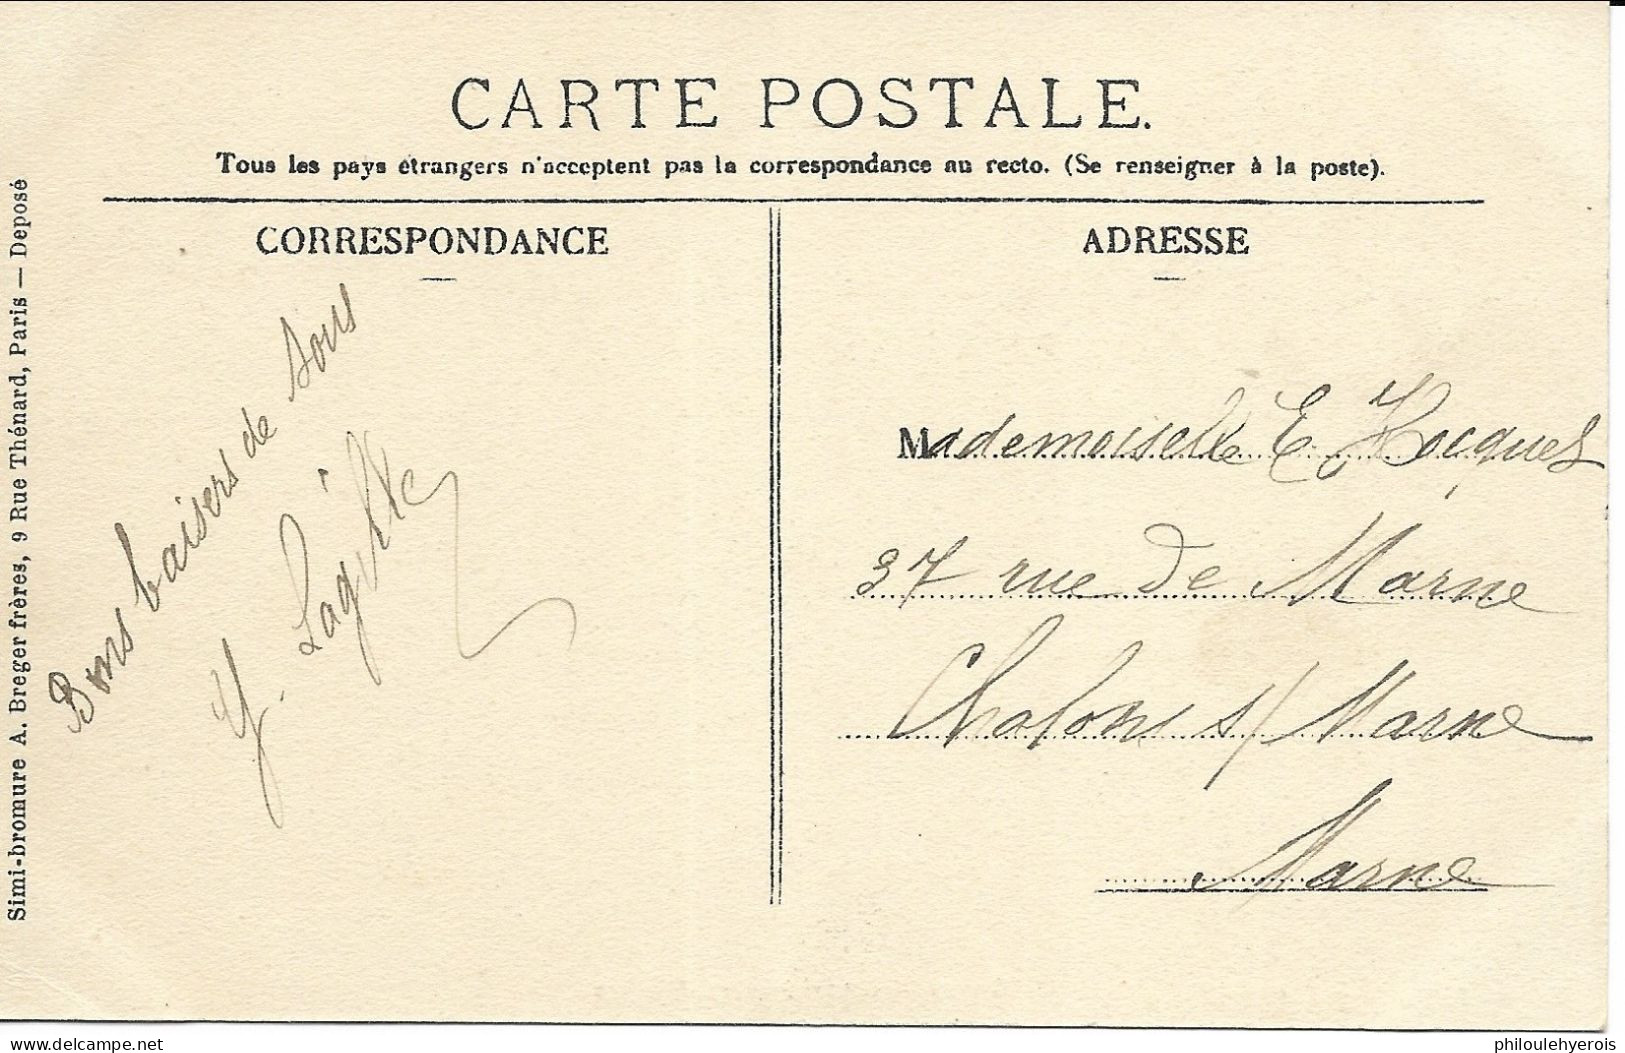 CARTE POSTALE.
Tous les pays étrangers n'acceptent pas la correspondance au recto. (Se renseigner à la poste).
CORRESPONDANCE
Bons baisers de tous
Y.
ADRESSE
Mademoiselle E Hocquet
37 rue de Marne
Chalons s/ Marne
Marne
Simi-bromure A. Breger frères, 9 Rue Thénard, Paris — Deposé
delcampe.net
philoulehyerois